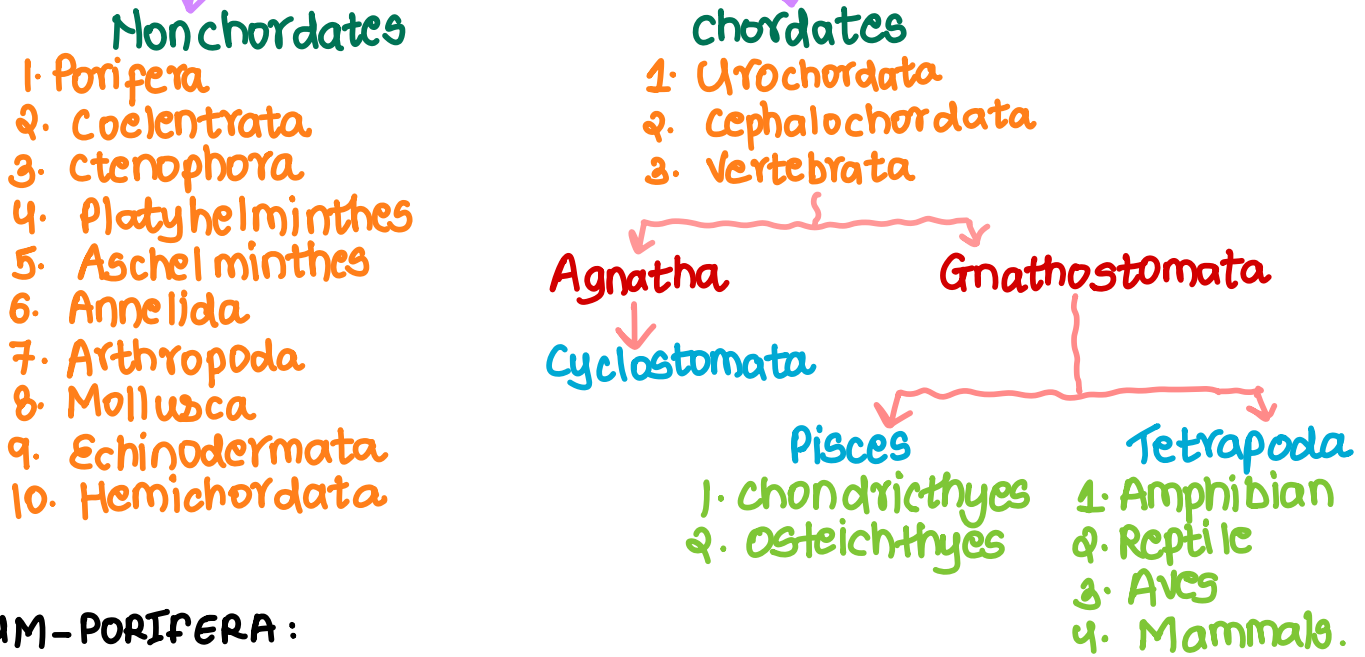 Nonchordates
1. Porifera
2. Coelentrata
3. ctenophora
4. Platyhelminthes
5. Aschelminthes
6. Annelida
7. Arthropoda
8. Mollusca
9. Echinodermata
10. Hemichordata
chordates
1. Urochordata
2. cephalochordata
3. vertebrata
Agnatha
Gnathostomata
Cyclostomata
Pisces
1. chondricthyes
2. Osteichthyes
Tetrapoda
1. Amphibian
2. Reptile
3. Aves
4. Mammals.
UM-PORIFERA: